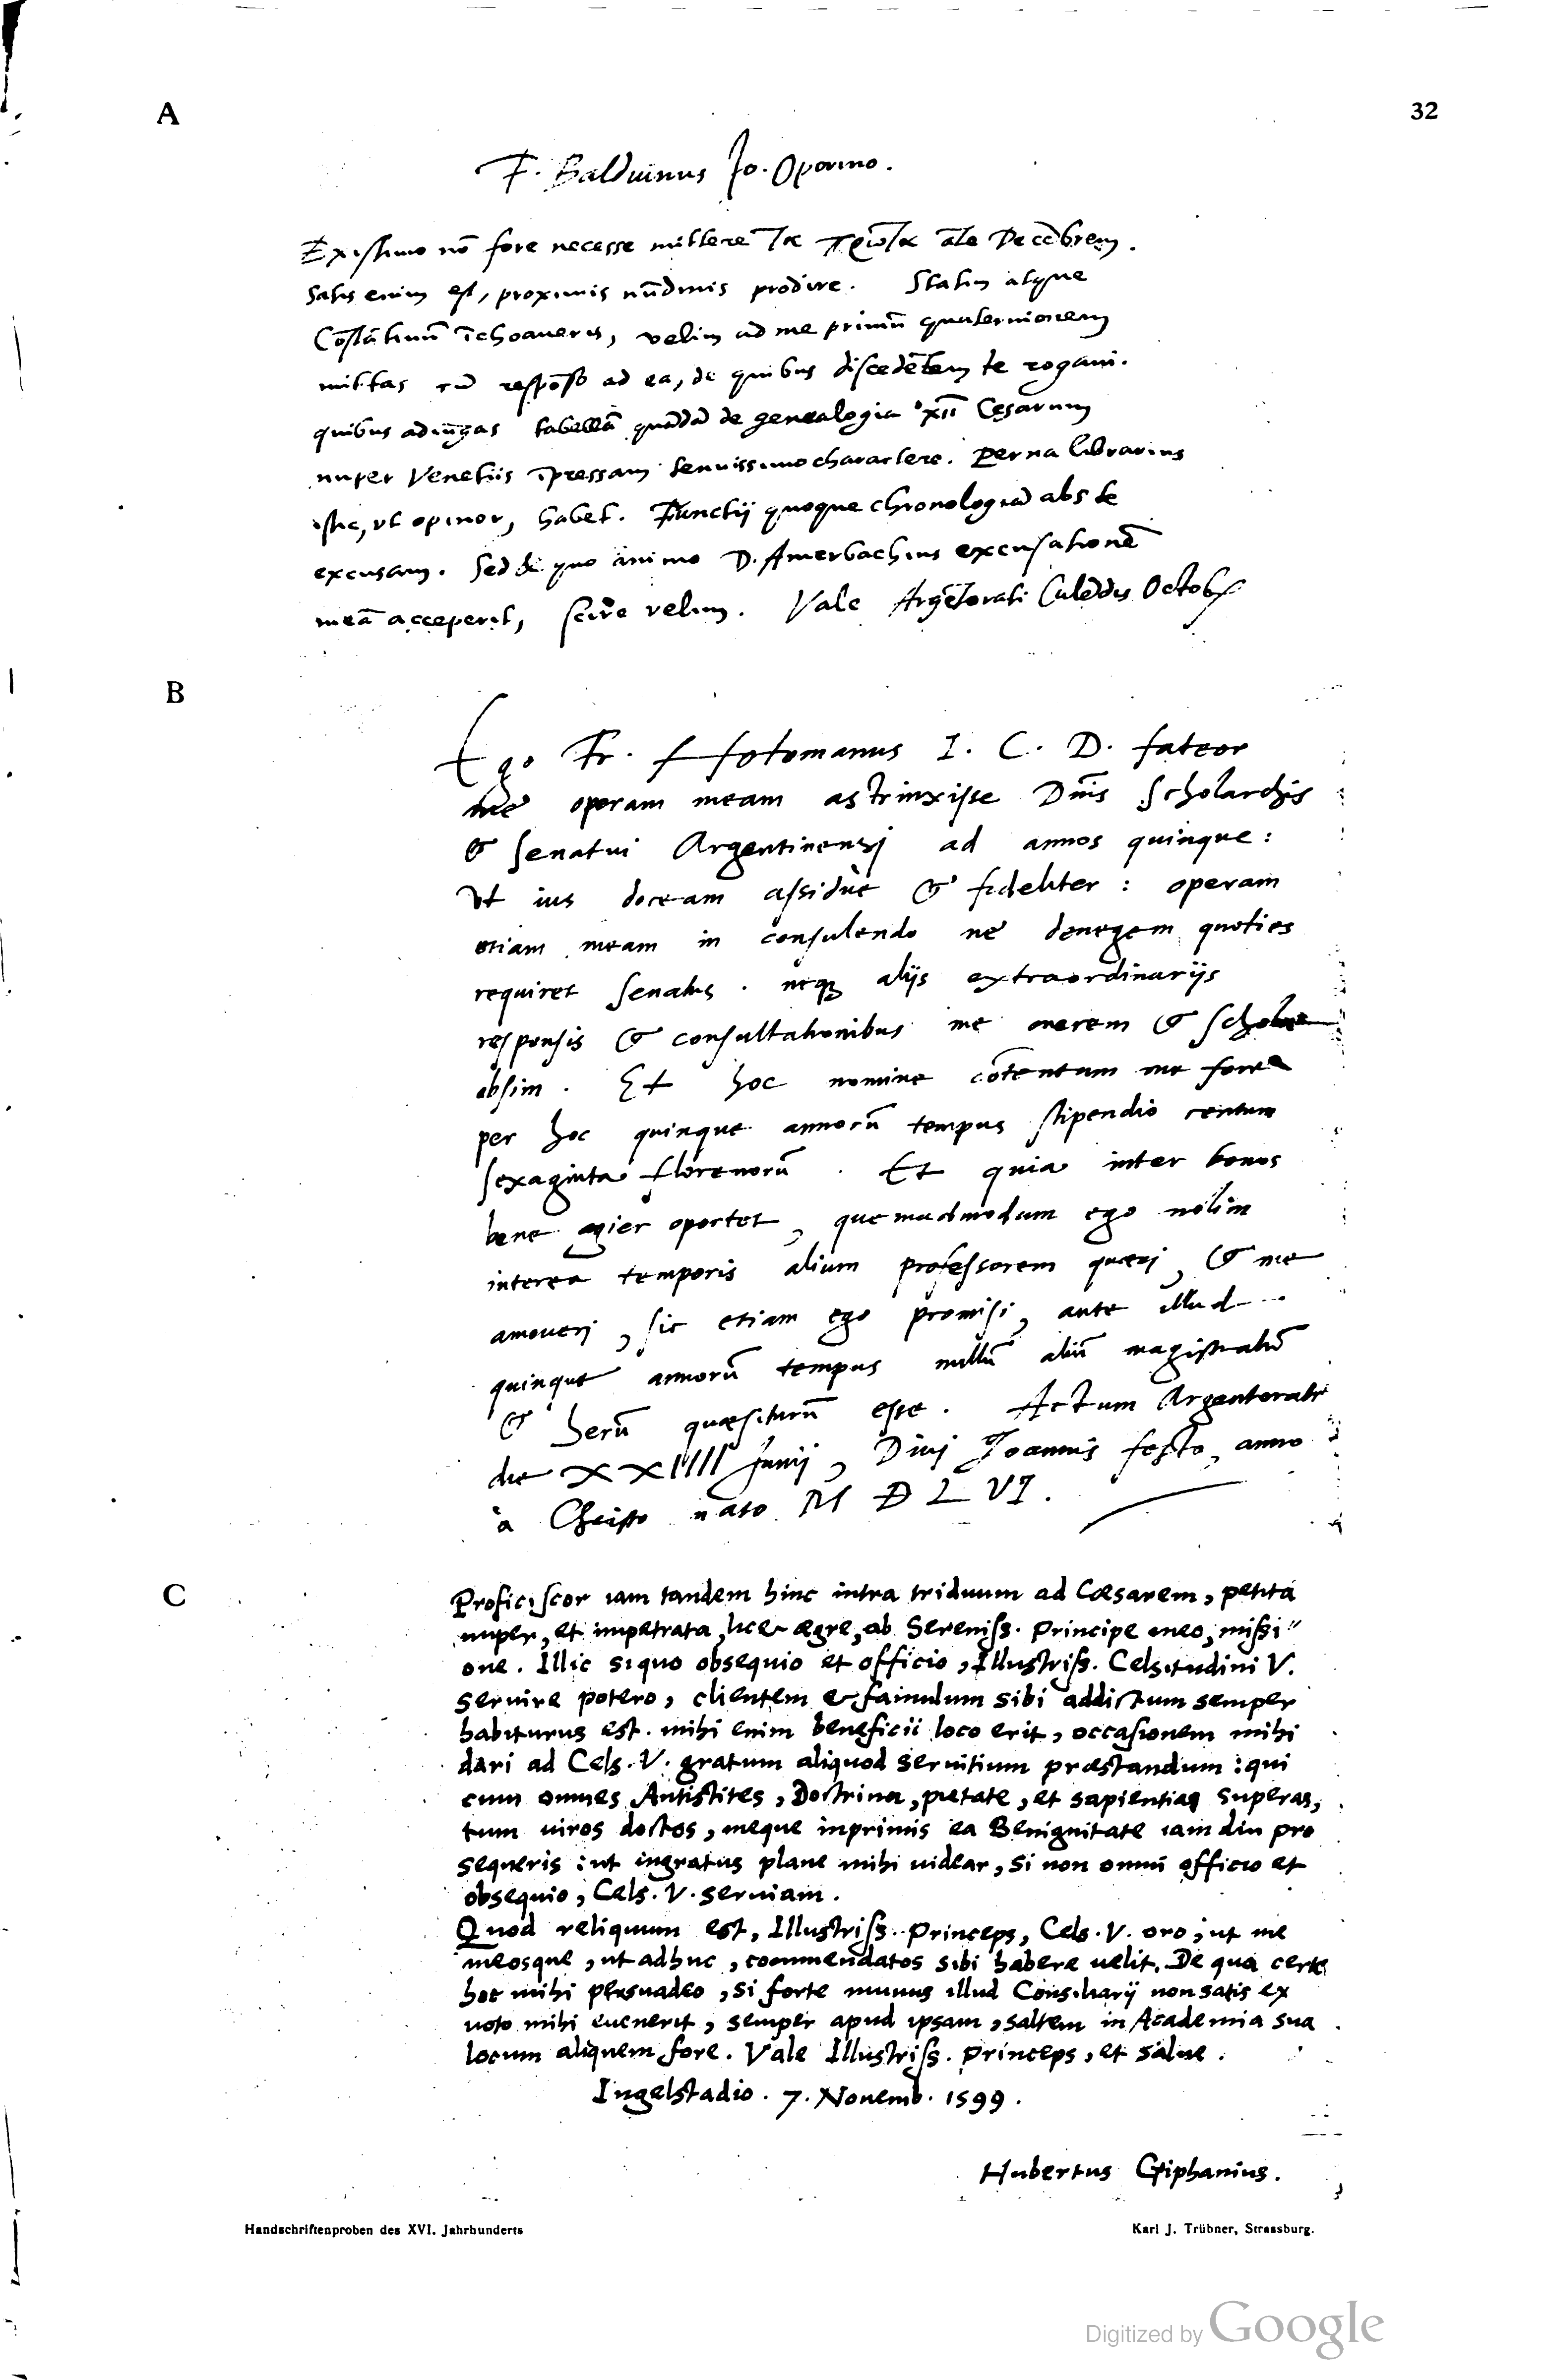 A
32
F. Balduinus Jo. Oporino.
Existimo nō fore necesse mittere τὰ πρῶτα āte Decēbrem.
Satis enim est, proximis nūdinis prodire. Statim atque
Cōstātinū īchoaueris, velim ad me primū quaternionem
mittas cū respōso ad ea, de quibus discedētem te rogaui.
quibus adiūgas tabellā quādā de genealogia xii Cęsarum
nuper Venetiis īpressam tenuissimo charactere. Perna librarius
istic, vt opinor, habet. Functij quoque chronologiā abs te
excusam. Sed de quo animo D. Amerbachius excusationē
meā acceperit, scire velim. Vale Argētorati Calēdis Octob
B
Ego Fr. Hotomanus I. C. D. fateor
me operam meam astrinxisse Dnīs Scholarchis
& senatui Argentinensi ad annos quinque:
Vt ius doceam assiduè & fideliter: operam
etiam meam in consulendo ne denegem quoties
requiret senatus. neque alijs extraordinarijs
responsis & consultationibus me onerem & schola
absim. Et hoc nomine cōtentum me fore
per hoc quinque annorū tempus stipendio centum
sexaginta florenorū. Et quia inter bonos
bene agier oportet, quemadmodum ego nolim
interea temporis alium professorem quæri, & me
amoueri, sic etiam ego promisi, ante illud
quinque annorū tempus nullū aliū magistratū
& herū quæsiturū esse. Actum Argentorati
die XXIIII Junij, Diui Joannis festo, anno
à Christo nato M D L VI.
C
Proficiscor iam tandem hinc intra triduum ad Cæsarem, petita
nuper, et impetrata, licet ægre, ab Sereniss. Principe meo, missi"
one. Illic si quo obsequio et officio, Illustriss. Celsitudini V.
seruire potero, clientem & famulum sibi addictum semper
habiturus est. mihi enim beneficii loco erit, occasionem mihi
dari ad Cels. V. gratum aliquod seruitium præstandum: qui
cum omnes Antistites, Doctrina, pietate, et sapientia superas,
tum uiros doctos, meque inprimis ea Benignitate iam diu pro
sequeris: ut ingratus plane mihi uidear, si non omni officio et
obsequio, Cels. V. seruiam.
Quod reliquum est, Illustriss. Princeps, Cels. V. oro, ut me
meosque, ut adhuc, commendatos sibi habere uelit. De qua certe
hoc mihi persuadeo, si forte munus illud Consiliarij non satis ex
uoto mihi euenerit, semper apud ipsam, saltem in Academia sua
locum aliquem fore. Vale Illustriss. Princeps, et salue.
Ingelstadio. 7. Nouemb. 1599.
Hubertus Giphanius.
Handschriftenproben des XVI. Jahrhunderts
Karl J. Trübner, Strassburg.
Digitized by Google